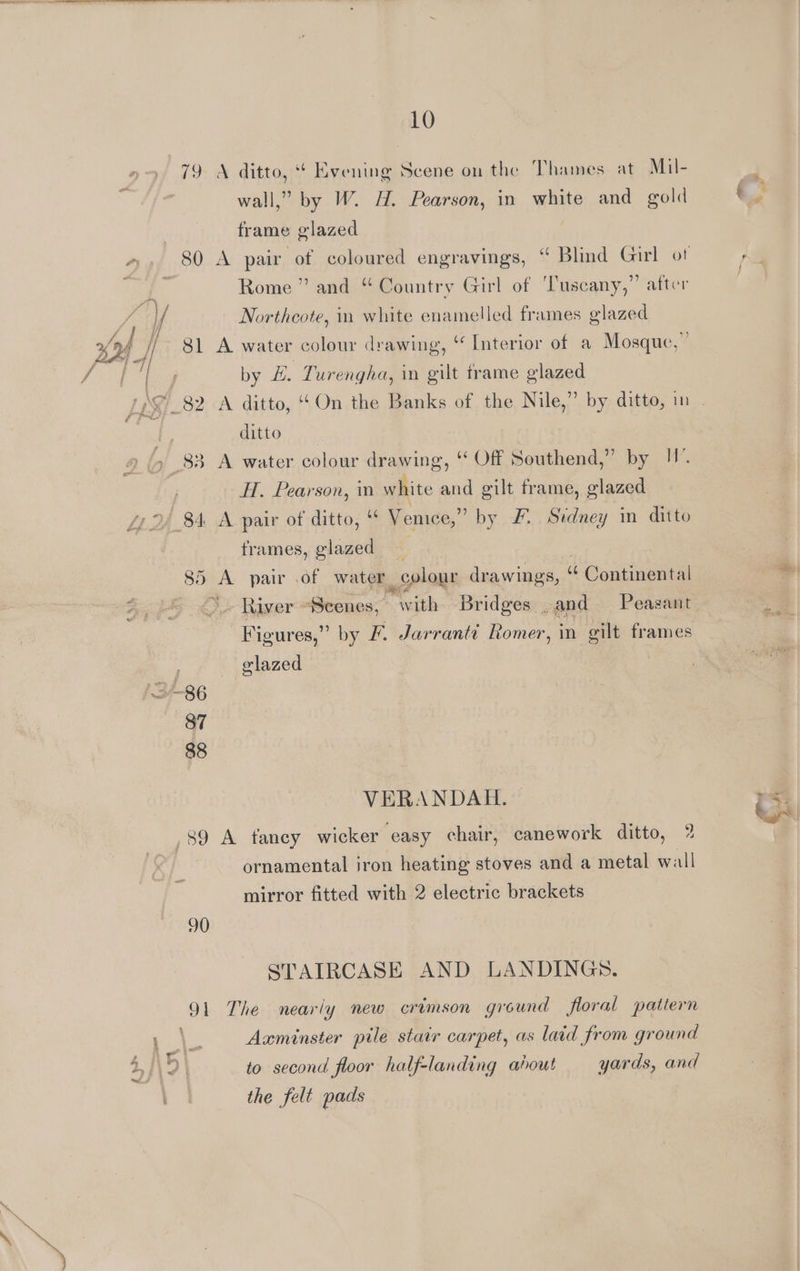 10
79 A ditto, “Evening Scene on the Thames at Mil-
wall,” by W. H. Pearson, in white and gold
frame glazed
80 A pair of coloured engravings, “Blind Girl of
Rome” and “Country Girl of Tuscany,” after
Northcote, in white enamelled frames glazed
81 A water colour drawing, “Interior of a Mosque,”
by E. Turengha, in gilt frame glazed
82 A ditto, “On the Banks of the Nile,” by ditto, in
ditto
83 A water colour drawing, “Off Southend,” by W.
H. Pearson, in white and gilt frame, glazed
84 A pair of ditto, “Venice,” by F. Sidney in ditto
frames, glazed
85 A pair of water colour drawings, “Continental
River Scenes, with Bridges and Peasant
Figures,” by F. Jarranti Romer, in gilt frames
glazed
86
87
88
VERANDAH.
89 A fancy wicker easy chair, canework ditto, 2
ornamental iron heating stoves and a metal wall
mirror fitted with 2 electric brackets
90
STAIRCASE AND LANDINGS.
91 The nearly new crimson ground floral pattern
Axminster pile stair carpet, as laid from ground
to second floor half-landing about yards, and
the felt pads